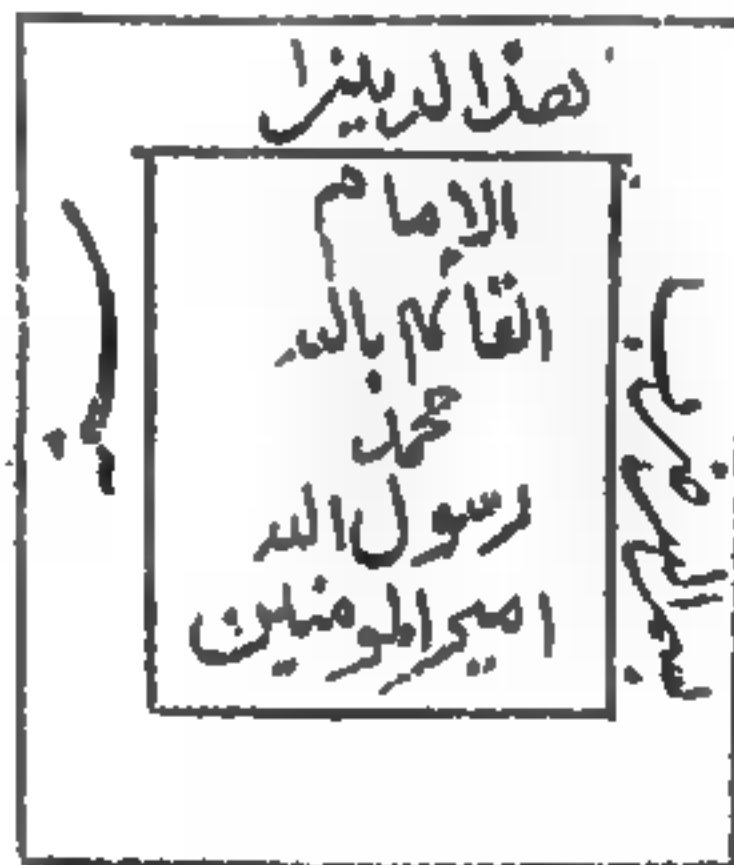 بسم الله ضرب
هذا الدينر
الإمام
القائم بالله
محمد
رسول الله
امير المومنين